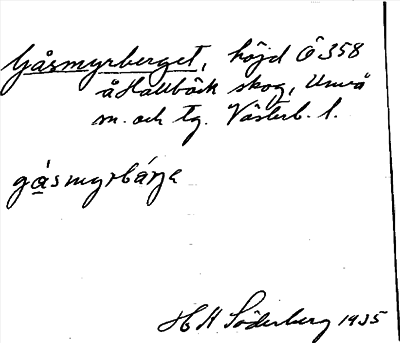 Gåsmyrberget, höjd Ö 358
å Hallbäck skog, Umeå
sn. och tg. Västerb. l.
gåsmyrbárje
H H Söderberg 1935